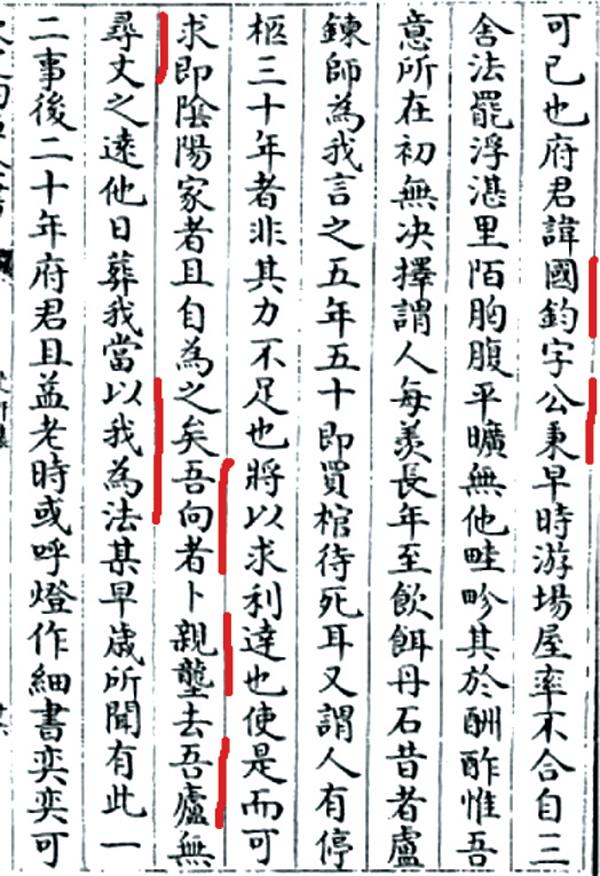 可已也府君諱國鈞字公秉早時游場屋率不合自三
舍法罷浮湛里陌胸腹平曠無他畦畛其於酬酢惟吾
意所在初無决擇謂人每羨長年至飲餌丹石昔者盧
鍊師為我言之五年五十即買棺待死耳又謂人有停
柩三十年者非其力不足也將以求利達也使是而可
求即陰陽家者且自為之矣吾向者卜親壟去吾廬無
尋丈之遠他日葬我當以我為法某早歲所聞有此一
二事後二十年府君且益老時或呼燈作細書奕奕可